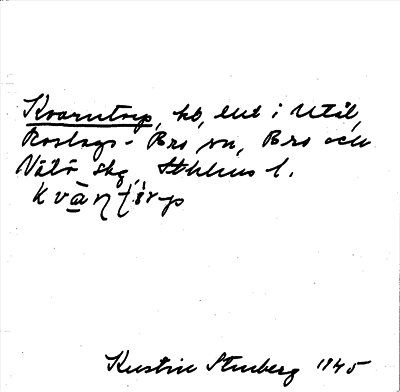 Kvarntorp, hb, lht i Utål,
Roslags-Bro sn, Bro och
Vätö skg, Sthlms l.
kvàṇṭɔ̀rp
Kerstin Stenberg 1945